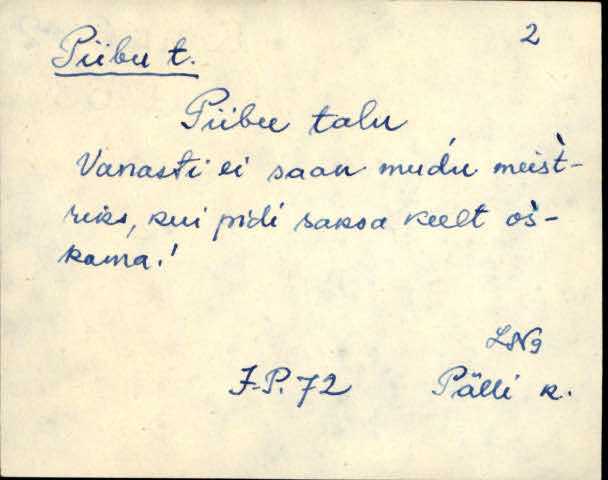 2
Piibu t.
Piibu talu
Vanasti ei saan mudu meist-
riks, kui pidi saksa keelt os-
kama!
LNg
J.P. 72 Pälli k.